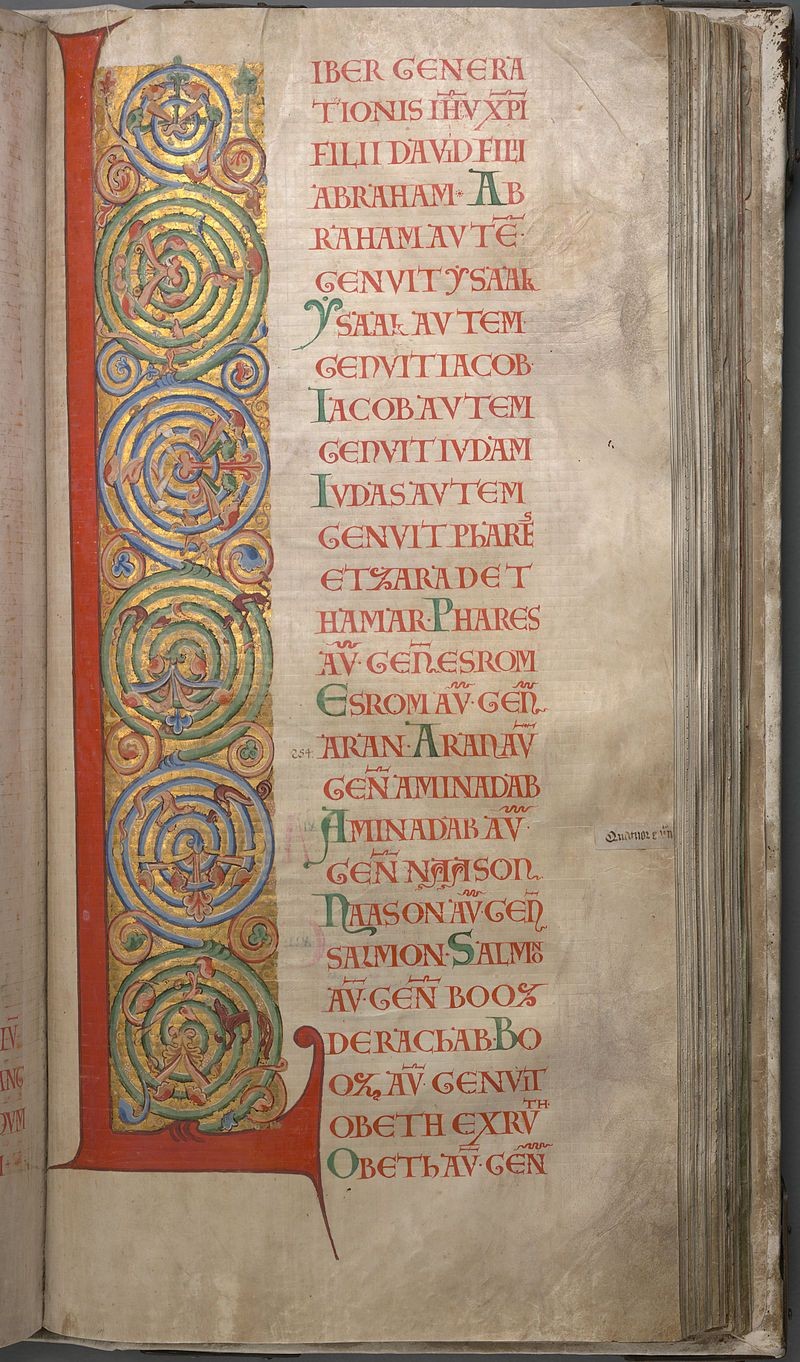 L
IBER GENERA
TIONIS IH̅V XP̅I
FILII DAVID FILII
ABRAHAM· AB
RAHAM AVTE̅·
GENVIT YSAAk
YSAAk AVTEM
GENVIT IACOB·
IACOB AVTEM
GENVIT IVDAM
IVDAS AVTEM
GENVIT PhARES
ET ZARA DE T
HAMAR· PHARES
AV̅· GEN̅ ESROM
ESROM AV̅· GEN̅
254·
ARAN· ARAN AV̅
GEN̅ AMINADAB
AMINADAB AV̅·
GEN̅ NAASON
NAASON AV̅· GEN̅
SALMON· SALMO̅
AV̅· GEN̅ BOOZ
DE RAChAB· BO
OZ AV̅· GENVIT
OBETH EX RVTH·
OBETh AV̅· GEN̅
Quatuor e
LV̅
ANG
DVM